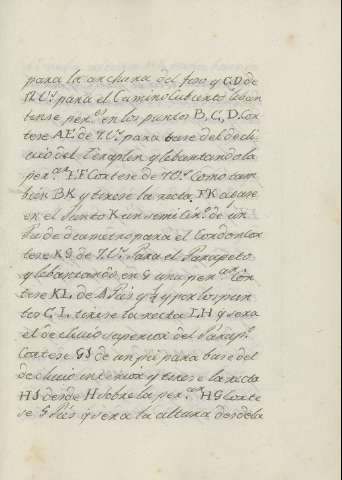 para la anchura del foso y C.D. de
para el Camino Cubierto leban
tense per.es en los puntos B, C, D. Cor
tese A.E. de 7. V.s para base del decli
vio del Teraplen y lebantandola
per.cur E.F. Cortese de 70.s Como tam
bien B.K y tirese la recta F.K. à base
en el Punto K un semicir.o de un
Pie de diametro para el Cordon Cor
tese K.G. de 7. V.s Para el Parapeto
y lebantando en G una per.cur Cor
tese K.L. de 4 Pies y ½ y por los pun
tos G, L, tirese la recta L.H y sera
el declivio superior del Parap.o
Cortese G.S de un pie para base del
declivio interior y tirese la recta
H.S desde H sobre la per.cur H.G Corte
se 6 Pies y sera la altura desde la